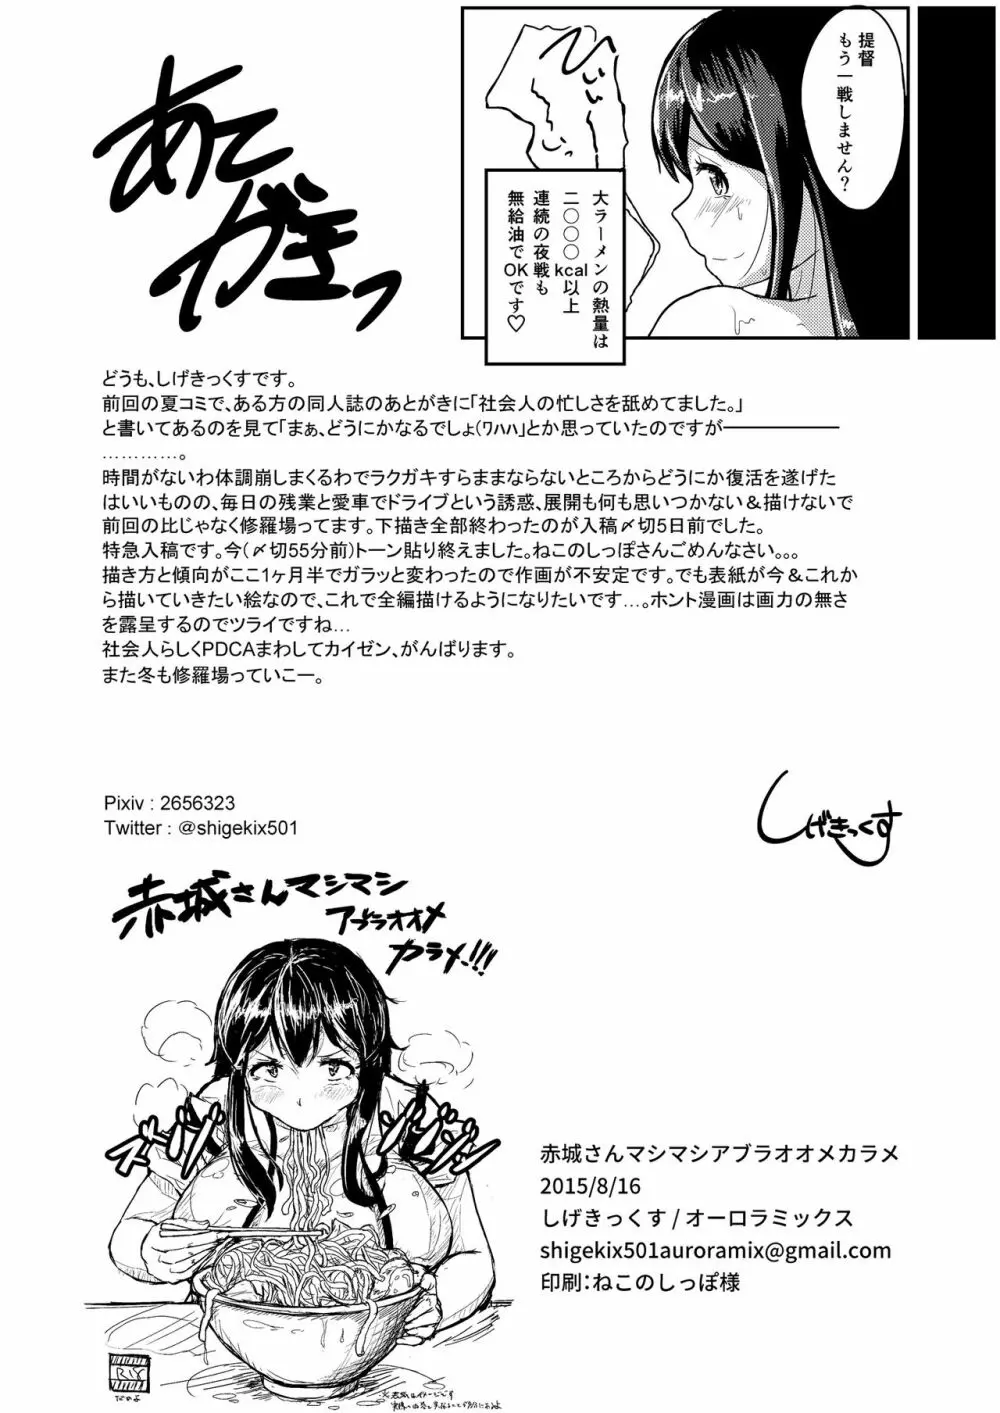 提督
もう一戦しません?
大ラーメンの熱量は
二〇〇〇kcal以上
連続の夜戦も
無給油でOKです♡
あてがきっ
どうも、しげきっくすです。
前回の夏コミで、ある方の同人誌のあとがきに「社会人の忙しさを舐めてました。」
と書いてあるのを見て「まぁ、どうにかなるでしょ(ﾜﾊﾊﾊ」とか思っていたのですが――――――
…………。
時間がないわ体調崩しまくるわでラクガキすらままならないところからどうにか復活を遂げた
はいいものの、毎日の残業と愛車でドライブという誘惑、展開も何も思いつかない＆描けないで
前回の比じゃなく修羅場ってます。下描き全部終わったのが入稿〆切5日前でした。
特急入稿です。今(〆切55分前)トーン貼り終えました。ねこのしっぽさんごめんなさい。。。
描き方と傾向がここ1ヶ月半でガラッと変わったので作画が不安定です。でも表紙が今＆これか
ら描いていきたい絵なので、これで全編描けるようになりたいです…。ホント漫画は画力の無さ
を露呈するのでツライですね…
社会人らしくPDCAまわしてカイゼン、がんばります。
また冬も修羅場っていこー。
Pixiv : 2656323
Twitter : @shigekix501
しげきっくす
赤城さんマシマシ
アブラオオメ
カラメ!!!
ズゾゾ
ゾゾゾ
赤城さんマシマシアブラオオメカラメ
2015/8/16
しげきっくす / オーロラミックス
shigekix501auroramix@gmail.com
印刷：ねこのしっぽ様